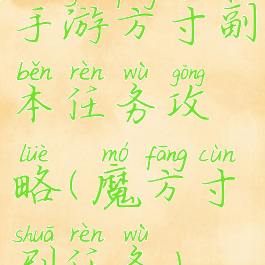 手游方寸副
běn rèn wù gōng
本任务攻
lüè mó fāng cùn
略(魔方寸
shuā rèn wù
刷任务)